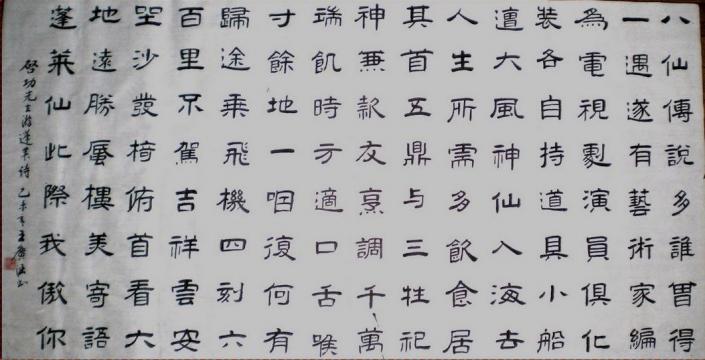 八仙傳說多誰曾得
一遇遂有藝術家編
為電視劇演員俱化
装各自持道具小船
遭大風神仙入海去
人生所需多飲食居
其首五鼎与三牲祀
神兼款友烹調千萬
端飢時方適口舌喉
寸餘地一咽復何有
歸途乘飛機四刻六
百里不駕吉祥雲安
坐沙發椅俯首看大
地遠勝蜃樓美寄語
蓬莱仙此際我傲你
啓功先生游蓬莱詩 乙未年王